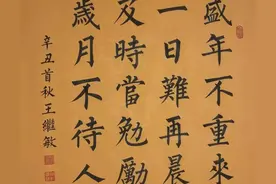 盛年不重來
一日難再晨
及時當勉勵
歲月不待人
辛丑首秋王繼敏